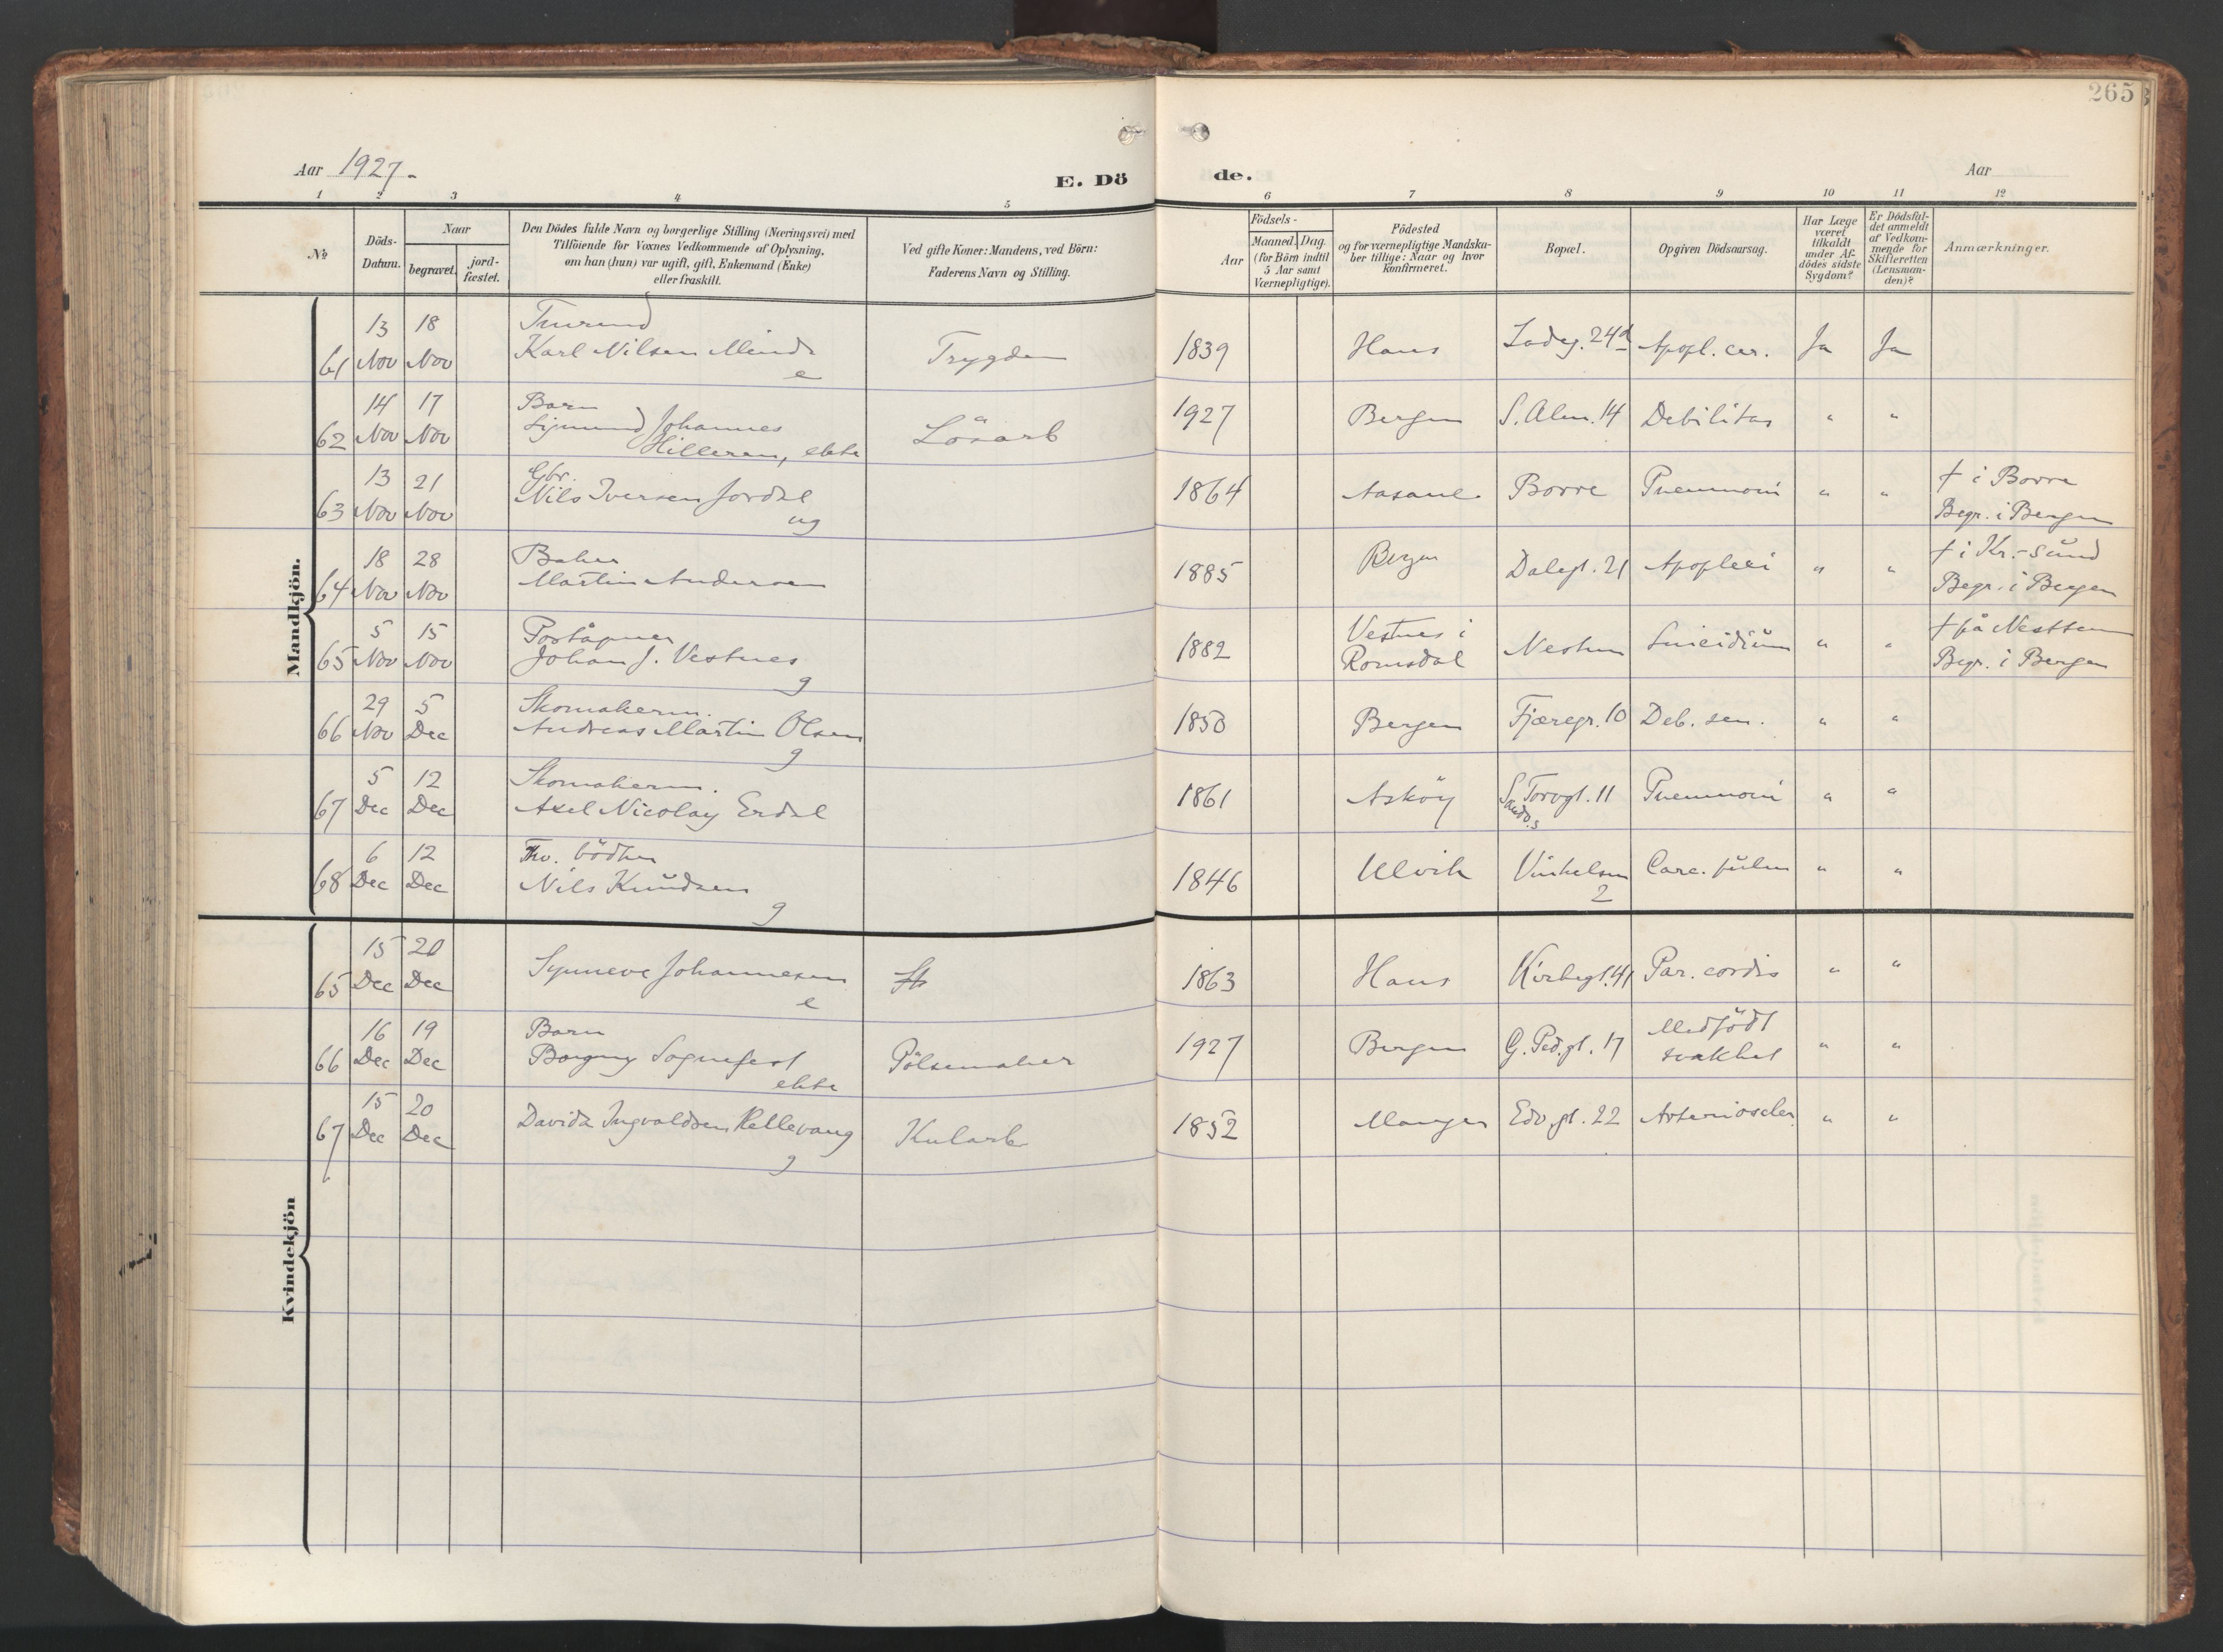 265
Aar 1927.
E. Dö
de.
Aar
1 2 3 4 5 6 7 8 9 10 11 12
No
Döds-Datum.
Naar
begravet.
jord-fæstet.
Den Dödes fulde Navn og borgerlige Stilling (Næringsvei) med
Tilföiende for Voxnes Vedkommende af Oplysning,
om han (hun) var ugift, gift, Enkemand (Enke)
eller fraskilt.
Ved gifte Koner: Mandens, ved Börn:
Faderens Navn og Stilling.
Födsels-
Aar
Maaned. Dag.
(for Börn indtil
5 Aar samt
Værnepligtige).
Födested
og for værnepligtige Mandska-
ber tillige: Naar og hvor
konfirmeret.
Bopæl.
Opgiven Dödsaarsag.
Har Læge
været
tilkaldt
under Af-
dödes sidste
Sygdom?
Er Dödsfal-
det anmeldt
af Vedkom-
mende for
Skifteretten
(Lensman-
den)?
Anmærkninger.
Mandkjön.
13 18
61 Nov Nov Karl Nilsen Minde e Trygden 1839 Haus Ladeg. 24d Apopl. cer. Ja Ja
14 17 Barn
62 Nov Nov Sigmund Johannes
Hilleren, ekte Lösarb 1927 Bergen S. Alm. 14 Debilitas " "
13 21 Gbr.
63 Nov Nov Nils Iversen Jordal ug 1864 Aasane Borre Pneumoni " " † i Borre
Begr. i Bergen
18 28 Baker
64 Nov Nov Martin Andersen 1885 Bergen Dalegt. 21 Apoplexi " " † i Kr.-sund
Begr. i Bergen
5 15 Poståpner
65 Nov Nov Johan J. Vestnes g 1882 Vestnes i
Romsdal Nesttun Suicidium " " † på Nesttun
Begr. i Bergen
29 5 Skomakerm.
66 Nov Dec Andreas Martin Olsen g 1850 Bergen Fjæregr. 10 Deb. sen. " "
5 12 Skomakerm.
67 Dec Dec Axel Nicolay Erdal 1861 Asköy S. Torvgt. 11
Sandv.s Pneumoni " "
6 12 Fhv. bödker
68 Dec Dec Nils Knudsen g 1846 Ulvik Vinkelsm
2 Carc. pulm " "
Kvindekjön
15 20
65 Dec Dec Synneve Johannesen e 1863 Haus Kirkegt. 41 Par. cordis " "
16 19 Barn
66 Dec Dec Borgny Sognefest ekte Pölsemaker 1927 Bergen G. Ped.gt. 17 Medfödt
svakhet " "
15 20
67 Dec Dec Davida Ingvaldsen Kellevaag g Kularb 1852 Manger Edv.gt. 22 Arterioscler. " "